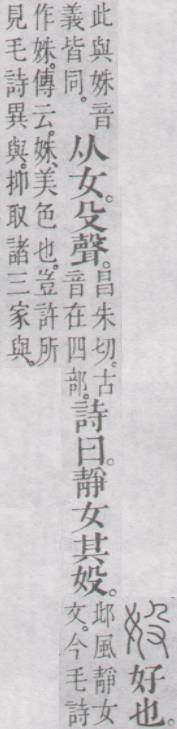 㚲好也。
此與姝音
義皆同。
从女。殳聲。
昌朱切。古
音在四部。
詩曰。靜女其㚲。
邶風靜女
文。今毛詩
作姝。傳云。姝、美色也。豈許所
見毛詩異與。抑取諸三家與。